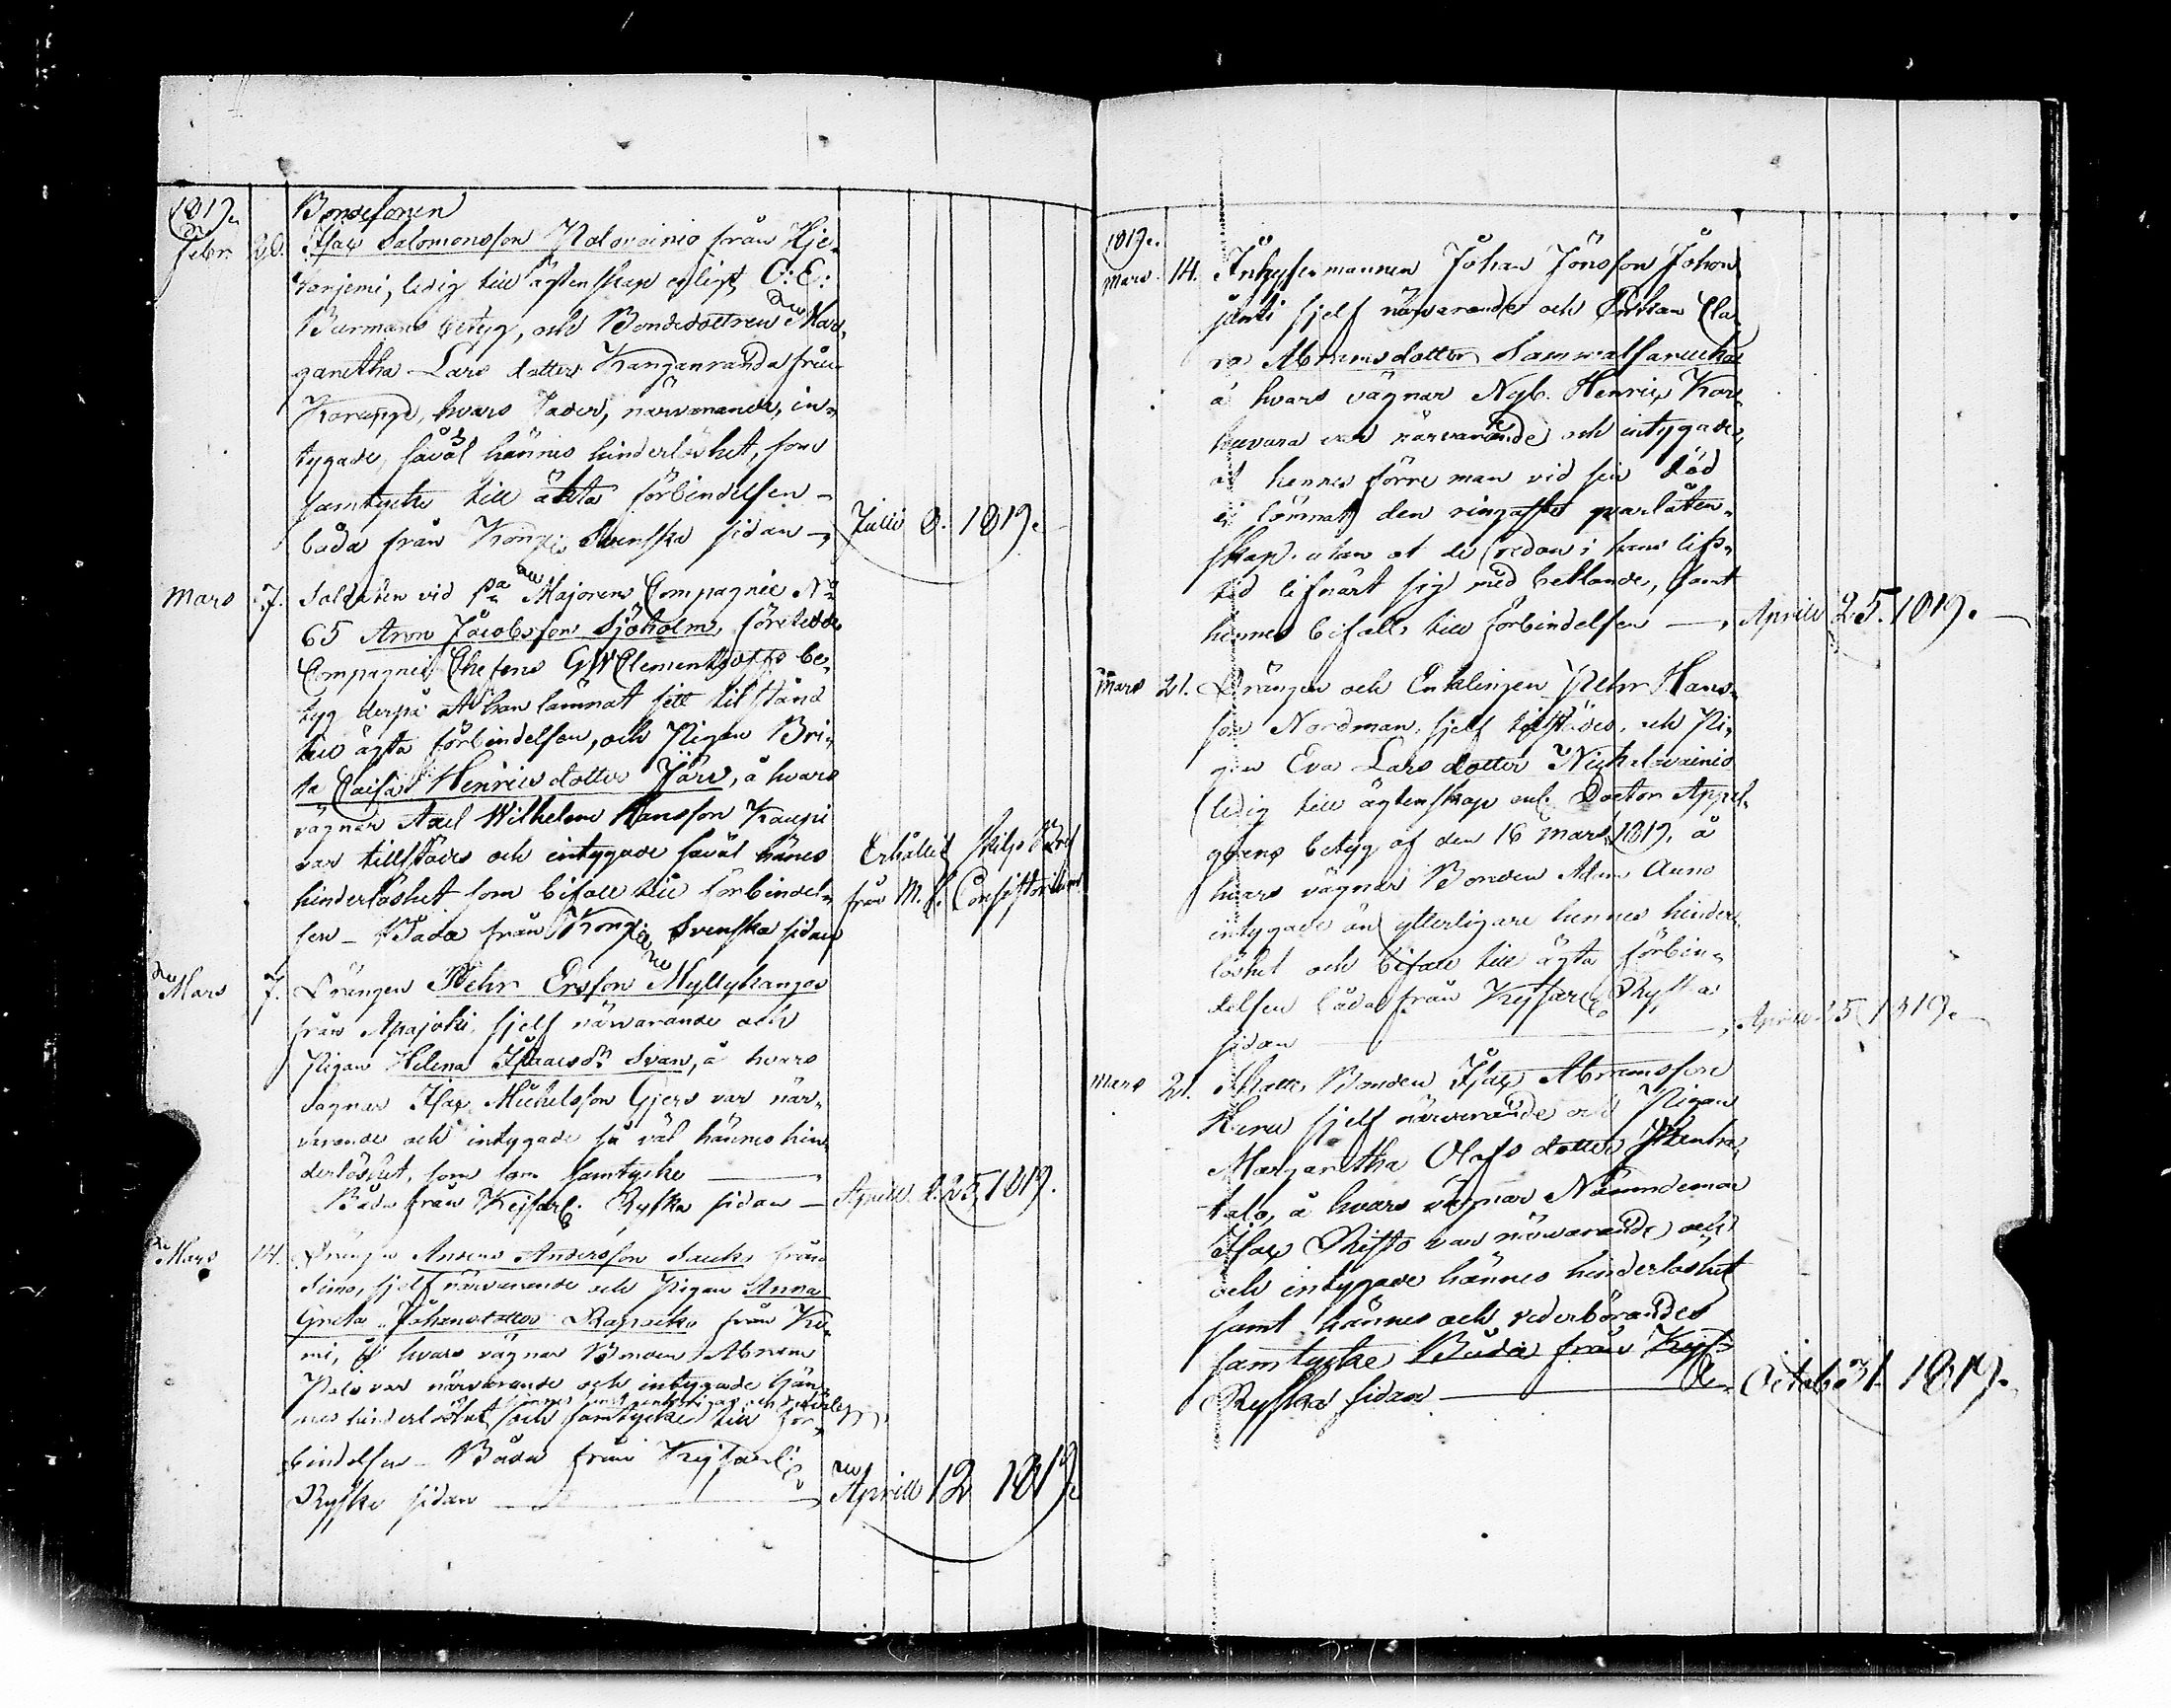 1819.
Bondesonen
Febr. 28. Isac Salomonsson Palovainio från Hje-
tanjemi, ledig till ägtenskap enligt C: E:
Burmans betyg, och Bondedottren Mar-
garetha Lars dotter Kanganranda från
Karungi, hvars Fader, närvarande, in-
tygade, såväl hännes hinderlöshet, som
samtycke till äkta förbindelsen –
båda från Kongl. Svenska sidan – Julii 8. 1819.
Mars 7. Soldaten vid Majorens Compagnie No
65 Aron Jacobsson Sjöholm, företedde
Compagnie Chefens GW Clementsoffs be-
tyg derpå at han lämnat sitt tilstånd
till ägta förbindelsen, och Pigan Bri-
ta Caisa Henrics dotter Järv, å hvars
vägnar Axel Wilhelm Hansson Kaupi
var tillstädes och intygade såväl hänes
hinderlöshet som bifall till förbindel-
sen – Båda från Kongl. Svenska sidan
Erhållit Skiljobref
från M. V. Consistorium
Mars 7. Drängen Pehr Ersson Myllykangas
från Apajoki, sjelf närvarande och
Pigan Helena Isaacsdr Svan, å hvars
vägnar Isac Michelsson Gjers var när-
varande och intygade så väl hännes hin-
derlöshet, som samtycke –
Båda från Kejserl. Ryska sidan – Aprill d. 25, 1819.
Mars 14. Drängen Anders Andersson Sauko från
Simo, sjelf närvarande och Pigan Anna
Greta Johansdotter Rapacko från Ke-
mi, å hvars vägnar Bonden Abram
Palo var närvarande och intygade hän-
nes hinderlöshet och samtycke till för-
bindelsen – Båda från Kejserl.
Ryska sidan – Aprill 12 1819.
1819.
Mars. 14. Inhysesmannen Johan Jönsson Johon
junti sjelf närvarande och Enkan Cla-
ra Abramsdotter Samuelsanucka
å hvars vägnar Nyb. Henric Kor-
kuvara var närvarande och intygade,
at hennes förre man vid sin död
ej lömnat den ringaste qvarlåten-
skap, utan at de redan i hans lifs-
tid lifnärt sig med bettlande, samt
hennes bifall till förbindelsen – Aprill 25. 1819.
Mars 21. Drängen och Enklingen Pehr Hans-
son Nordman, sjelf tillstädes, och Pi-
gan Eva Lars dotter Niskavainio
ledig till ägtenskap enl. Doctor Appel-
grens betyg af den 16 Mars 1819, å
hvars vägnar Bonden Adam Auno
intygade än ytterligare hennes hinder-
löshet och bifall till ägta förbin-
delsen båda från Kejserl. Ryska
sidan – Aprill 25 1819.
Mars 21. Skatte Bonden Isac Abramsson
Keru sjelf närvarande och Pigan
Margaretha Olofs dotter
talo, å hvars vägnar Nämndeman
Isac Risto var närvarande och
och intygade hännes hinderlöshet
samt hännes och vederbörandes
samtycke Båda från Kejs.
Ryska sidan – Octob. 31. 1819.